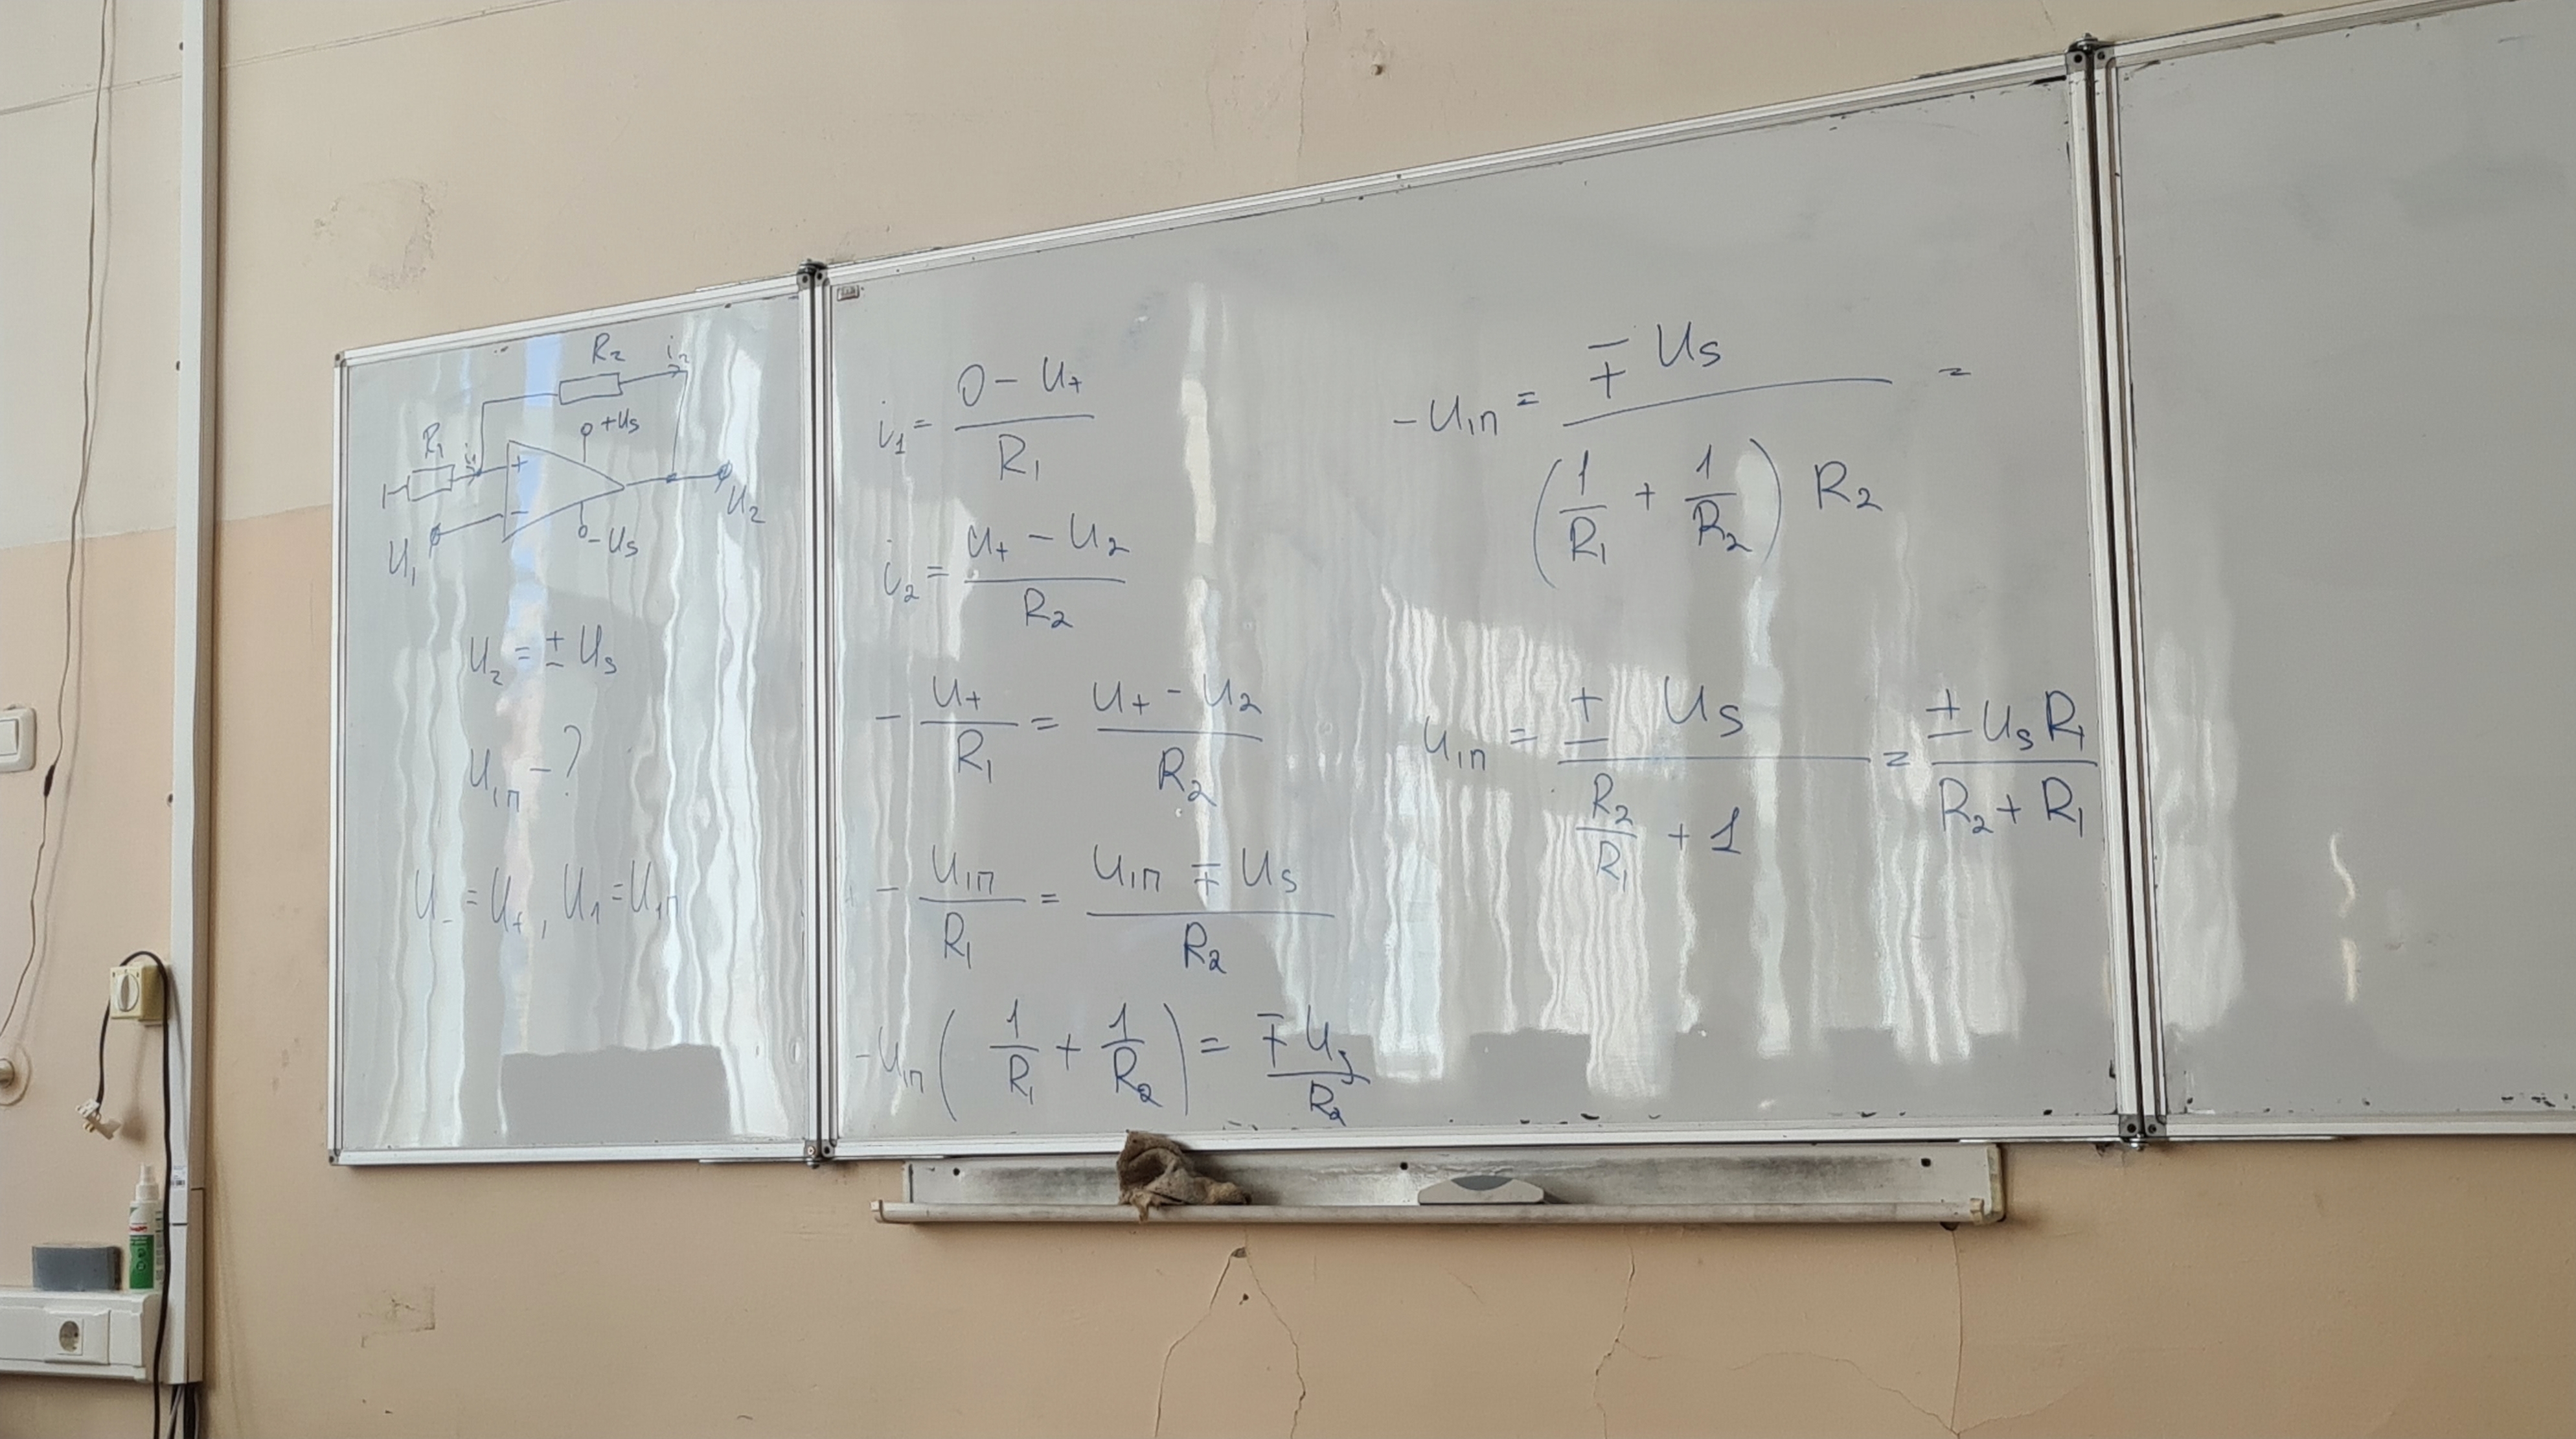 R₂ i₂
+Us
R₁ i₁ +
U₂
−
U₁ -Us
U₂ = ± Us
U₁п - ?
U₋ = U₊, U₁ = U₁п
i₁ = (0 - U₊) / R₁
i₂ = (U₊ - U₂) / R₂
- U₊ / R₁ = (U₊ - U₂) / R₂
- U₁п / R₁ = (U₁п ∓ Us) / R₂
- U₁п (1/R₁ + 1/R₂) = ∓ Us / R₂
- U₁п = ∓ Us / ((1/R₁ + 1/R₂) R₂) =
U₁п = ± Us / (R₂/R₁ + 1) = ± Us R₁ / (R₂ + R₁)